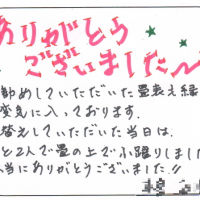 ありがとう
ございました〜
勧めしていただいた畳表と縁
変気に入っております。
替えしていただいた当日は、
と2人で畳の上で小躍りしました
当にありがとうございました!!